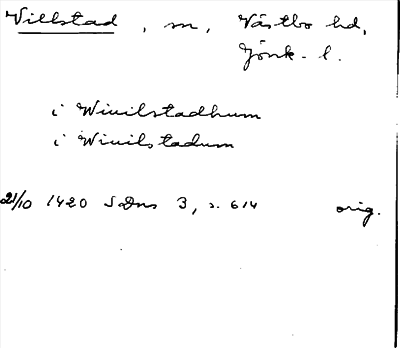 Villstad, sn, Västbo hd,
Jönk. l.
i Winilstadhum
i Winilstadum
21/10 1420 SDns 3, s. 614 orig.